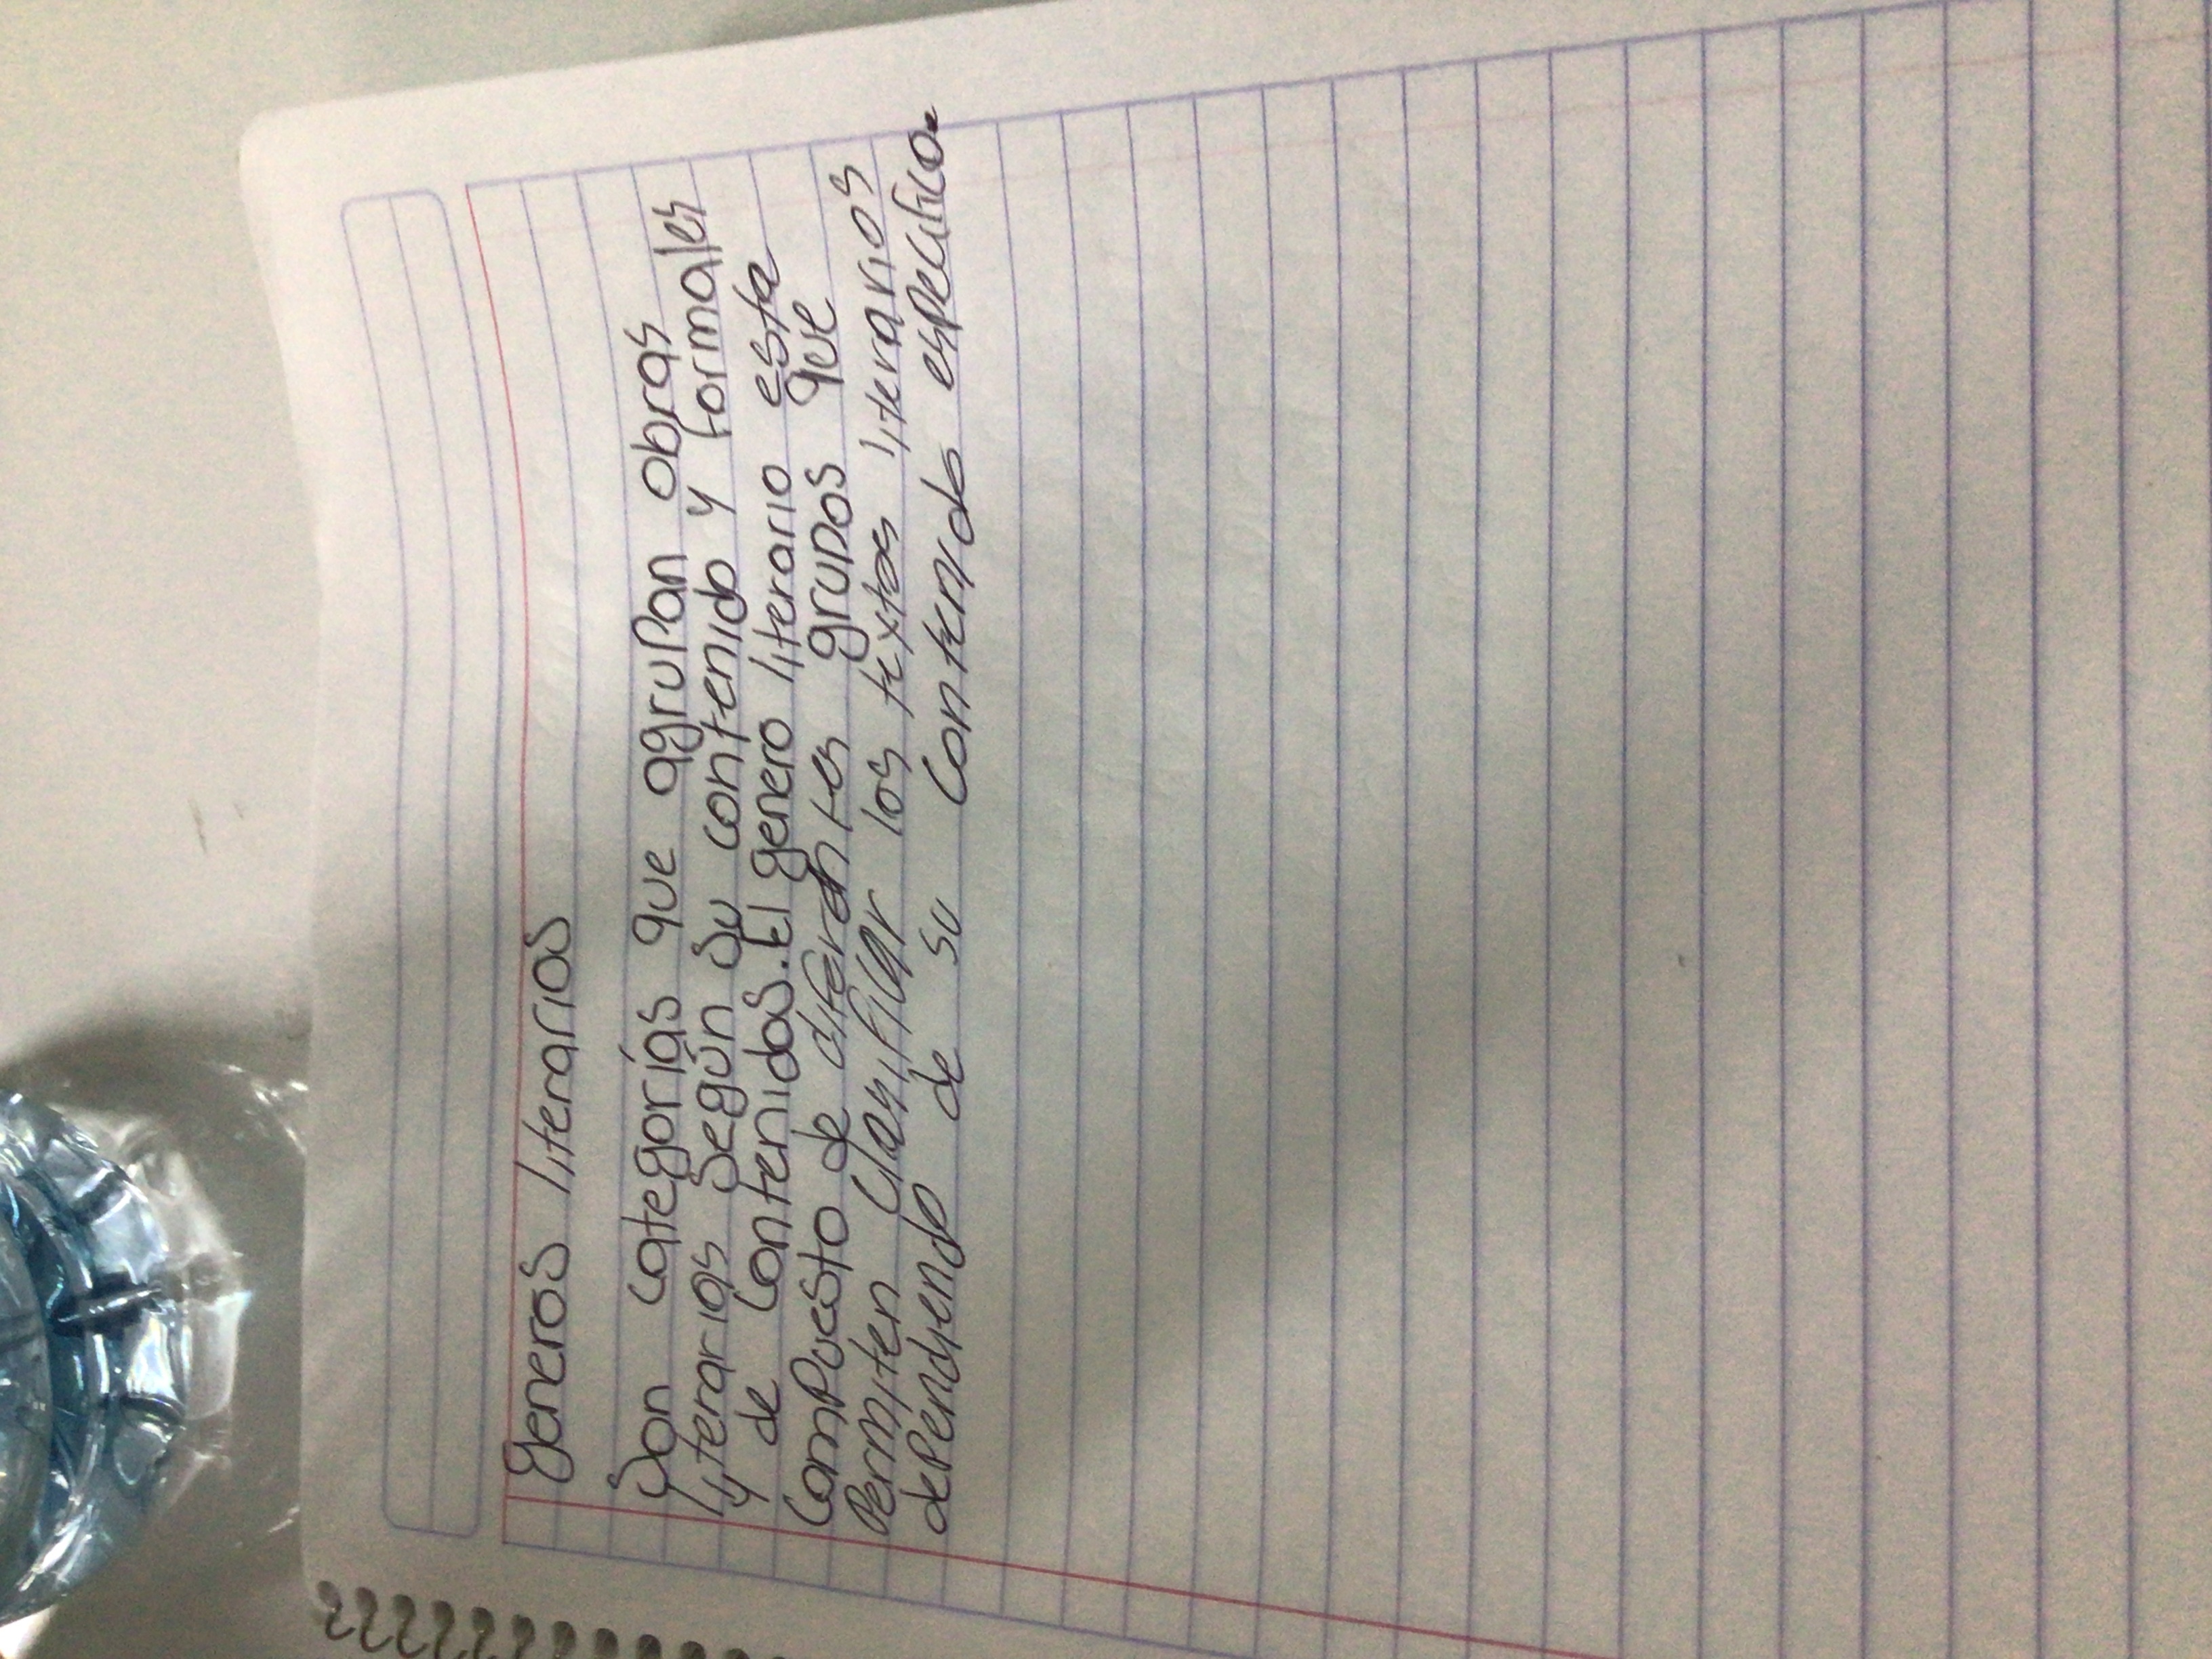 Generos literarios
Son categorías que agrupan obras
literarias según su contenido y formales
y de contenidos. El genero literario esta
compuesto de diferentes grupos que
permiten clasificar los textos literarios
dependiendo de su contenido especifico.